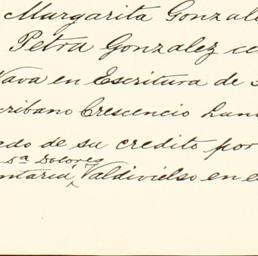 Margarita Gonzal
Petra Gonzalez ce
Nava en Escritura de
cribano Crescencio Lan
do de su credito por
Da Dolores
ntaria Valdivielso en e